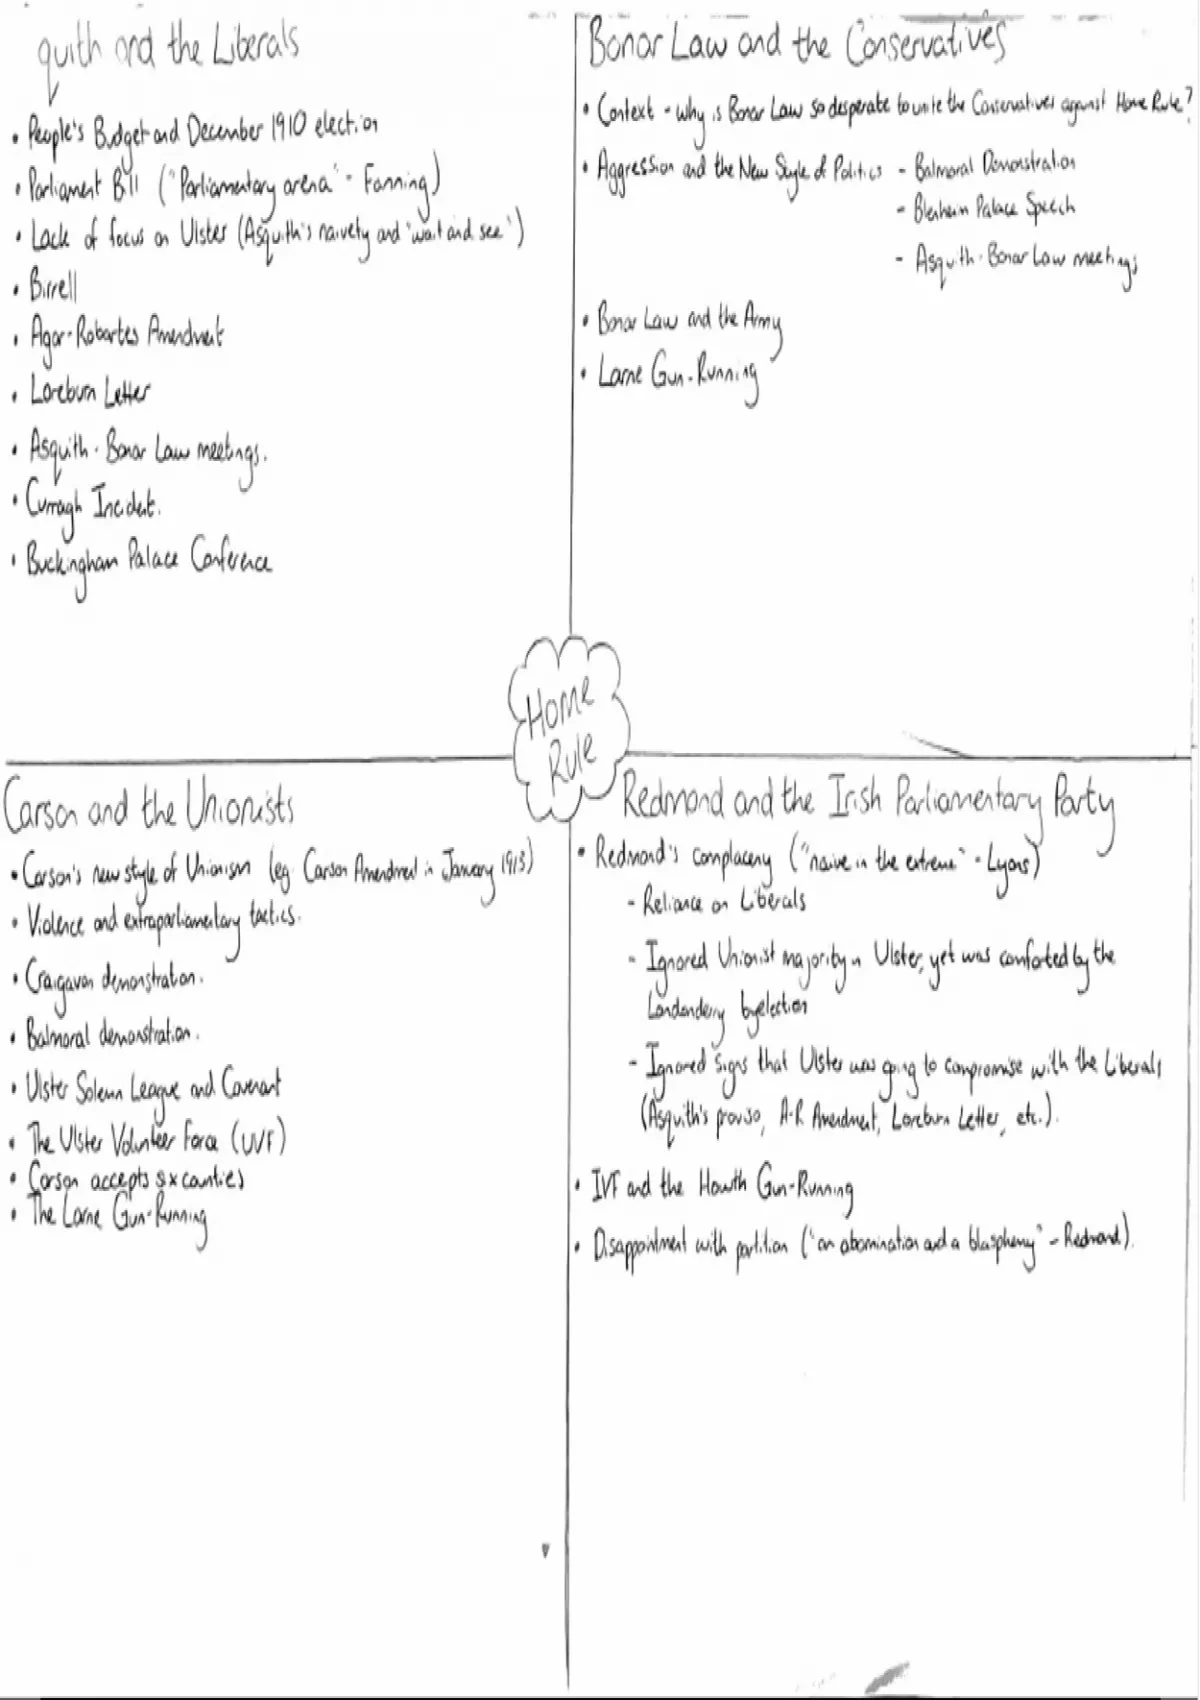 quith and the Liberals
• People's Budget and December 1910 election
• Parliament Bill ("Parliamentary arena" - Fanning)
• Lack of focus on Ulster (Asquith's naivety and 'wait and see')
• Birrell
• Agar-Robartes Amendment
• Loreburn Letter
• Asquith-Bonar Law meetings.
• Curragh Incident.
• Buckingham Palace Conference
Bonar Law and the Conservatives
• Context - why is Bonar Law so desperate to unite the Conservatives against Home Rule?
• Aggression and the New Style of Politics - Balmoral Demonstration
- Blenheim Palace Speech
- Asquith-Bonar Law meetings
• Bonar Law and the Army
• Larne Gun-Running
Home
Rule
Carson and the Unionists
• Carson's new style of Unionism (eg Carson Amendment in January 1913)
• Violence and extraparliamentary tactics.
• Craigavon demonstration.
• Balmoral demonstration.
• Ulster Solemn League and Covenant
• The Ulster Volunteer Force (UVF)
• Carson accepts six counties
• The Larne Gun-Running
Redmond and the Irish Parliamentary Party
• Redmond's complacency ("naive in the extreme" - Lyons)
- Reliance on Liberals
- Ignored Unionist majority in Ulster, yet was comforted by the
Londonderry byelection
- Ignored signs that Ulster was going to compromise with the Liberals
(Asquith's proviso, A-R Amendment, Loreburn Letter, etc.).
• IVF and the Howth Gun-Running
• Disappointment with partition ("an abomination and a blasphemy" - Redmond).